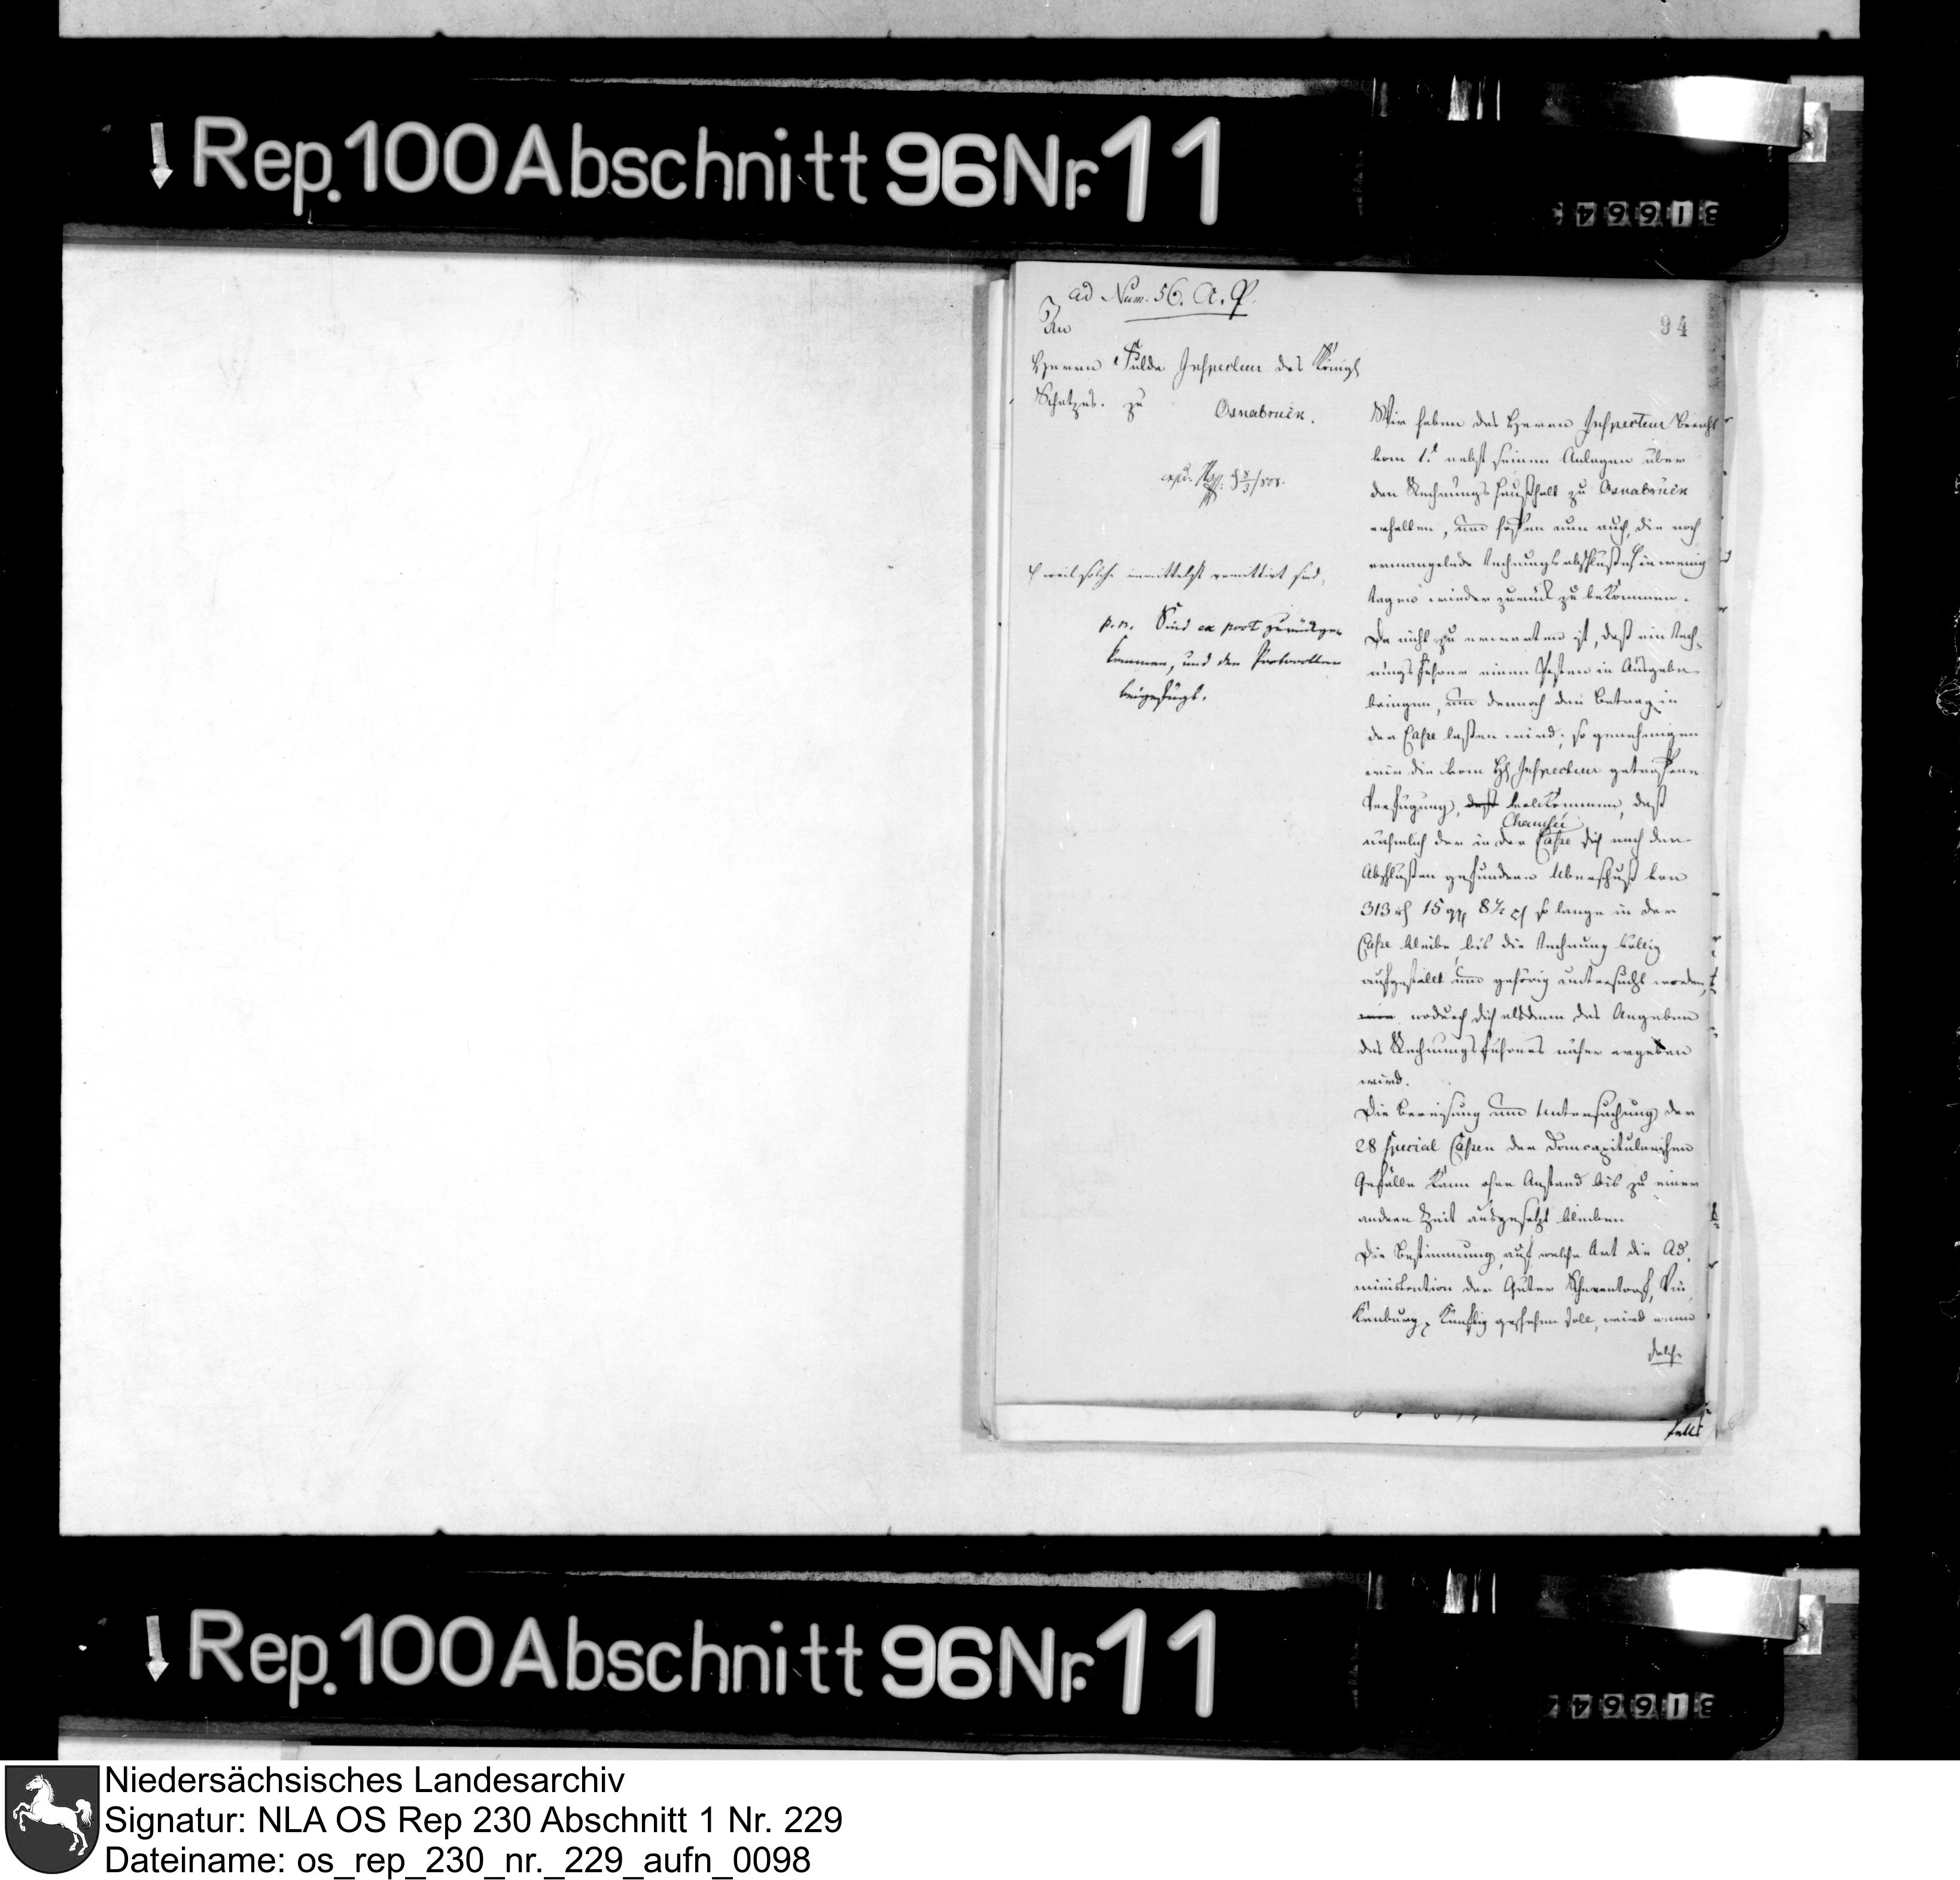 Rep. 100 Abschnitt 96 Nr. 11
31664
94
ad Num. 56. A. P.
An
Herrn Fulda Inspecteur des Königl
Schatzes. zu Osnabrück.
exp.
weil solche inmittelst remittirt sind,
p. n. Sind ex post zurückge
kommen, und den Protocollen
beigefügt.
Wir haben des Herrn Inspecteur Bericht
vom 1. nebst seinen Anlagen über
den Rechnungs haushalt zu Osnabrück
erhalten, und hoffen nun auch, die noch
ermangelnde Rechnungsabschlüsse in wenig
tagen wieder zurück zu bekommen.
Da nicht zu erwarten ist, daß ein Rech
nungsführer einen Posten in Ausgabe
bringen, und dennoch den Betrag in
der Casse lassen wird; so genehmigen
wir die vom H Inspecteur getroffene
Verfügung, daß vollkommen, daß
nähmlich der in der Chaussée Casse sich nach den
Abschlüssen gefundene Überschuß von
313 rh 15 ggr 8½ pf so lange in der
Casse bleibe, bis die Rechnung völlig
aufgestellt und gehörig untersucht worden,
wodurch sich alsdenn das Angeben
des Rechnungsführers näher ergeben
wird.
Die Bereisung und Untersuchung der
28 special Cassen der Domcapitularischen
Gefälle kann ohne Anstand bis zu einer
andern Zeit ausgesetzt bleiben
Die Bestimmung, auf welche Art die Ad
ministration der Güter Scheventorf,
künftig geschehen soll, wird wenn
solche
falls
Rep. 100 Abschnitt 96 Nr. 11
31664
Niedersächsisches Landesarchiv
Signatur: NLA OS Rep 230 Abschnitt 1 Nr. 229
Dateiname: os_rep_230_nr._229_aufn_0098